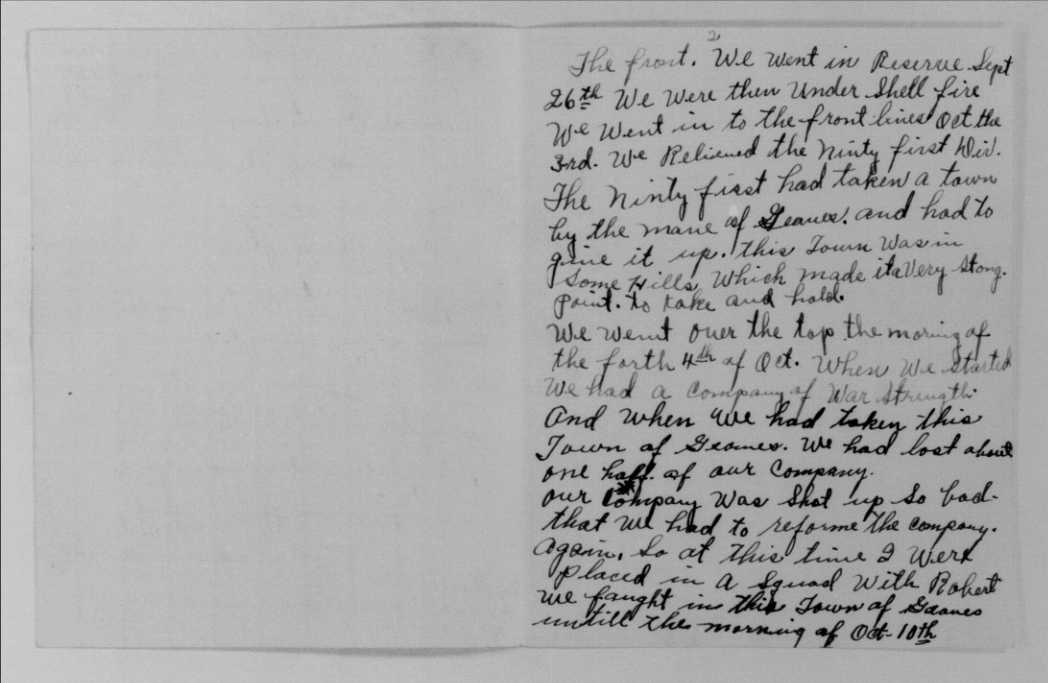 2
The front. We Went in Reserve Sept
26th We Were then Under Shell fire
We Went in to the front lines Oct the
3rd. We Relieved the Ninty first Div.
The Ninty first had taken a town
by the mane of Geanes. and had to
give it up. this Town Was in
Some Hills Which made it a Very Stong.
Point. to take and hold.
We went over the top the morning of
the forth 4th of Oct. When We started
We had a Company of War Strength.
And When We had taken this
Town of Geanes. We had lost about
one half of our Company.
our Company Was Shot up So bad-
that We had to reforme the Company.
Again. So at this time I Were
placed in a Squad With Robert
We faught in this Town of Geanes
untill the morning of Oct-10th